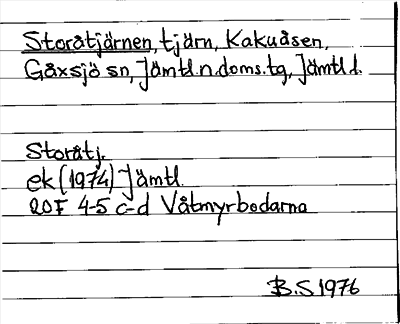 Storåtjärnen, tjärn, Kakuåsen,
Gåxsjö sn, Jämtl.n.doms.tg, Jämtl.l.
Storåtj.
ek (1974) Jämtl.
20F 4-5 c-d Våtmyrbodarna
B.S 1976